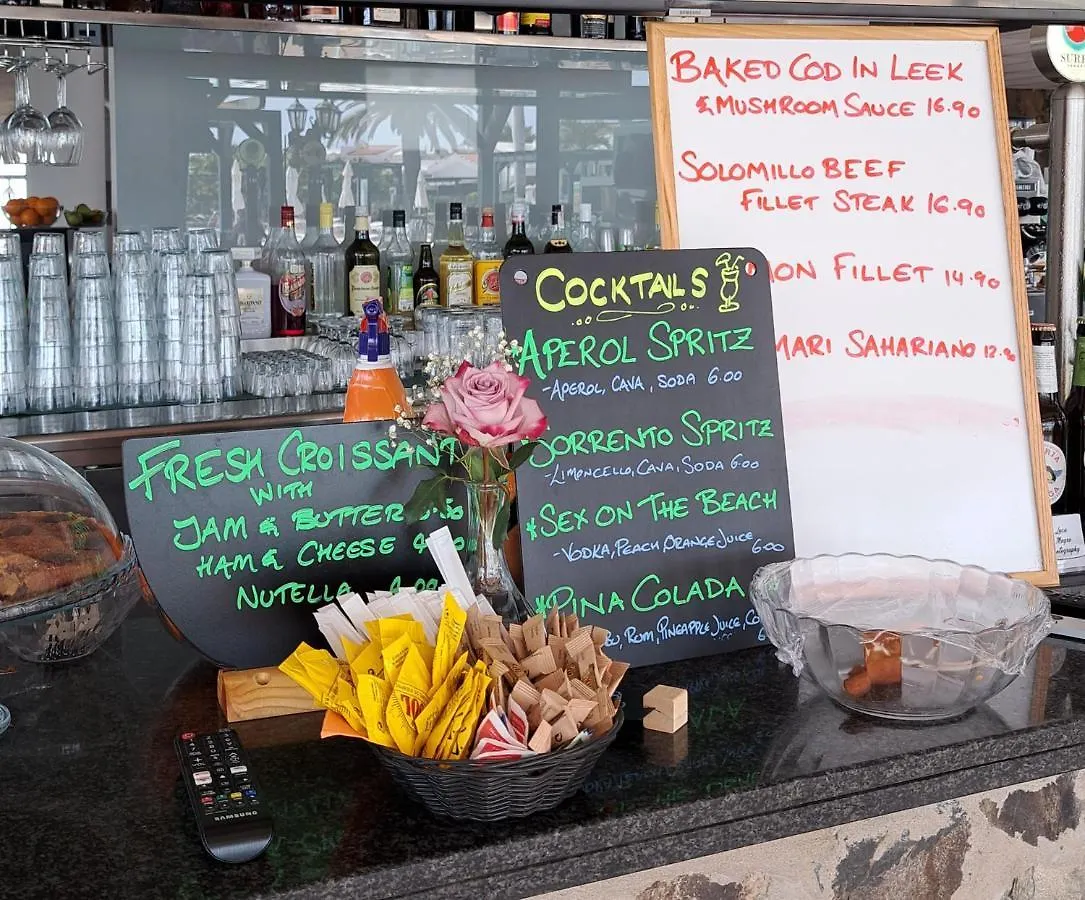 BAKED COD IN LEEK
& MUSHROOM SAUCE 16.90
SOLOMILLO BEEF
FILLET STEAK 16.90
MON FILLET 14.90
MARI SAHARIANO
COCKTAILS
*APEROL SPRITZ
-APEROL, CAVA, SODA 6.00
SORRENTO SPRITZ
-LIMONCELLO, CAVA, SODA 6.00
*SEX ON THE BEACH
-VODKA, PEACH, ORANGE JUICE
6.00
*PINA COLADA
BU, RUM, PINEAPPLE JUICE, CO
FRESH CROISSANT
WITH
JAM & BUTTER
HAM & CHEESE
NUTELLA
SAMSUNG